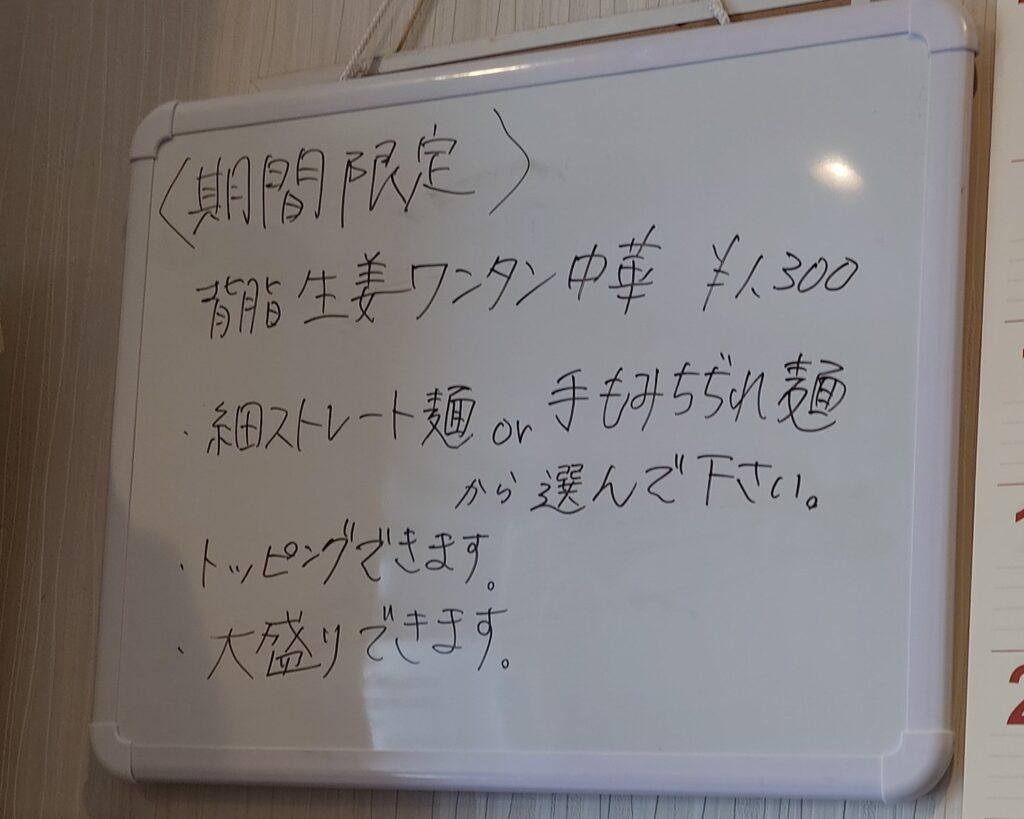 〈期間限定〉
背脂生姜ワンタン中華 ¥1,300
・細ストレート麺 or 手もみちぢれ麺
から選んで下さい。
・トッピングできます。
・大盛りできます。
2